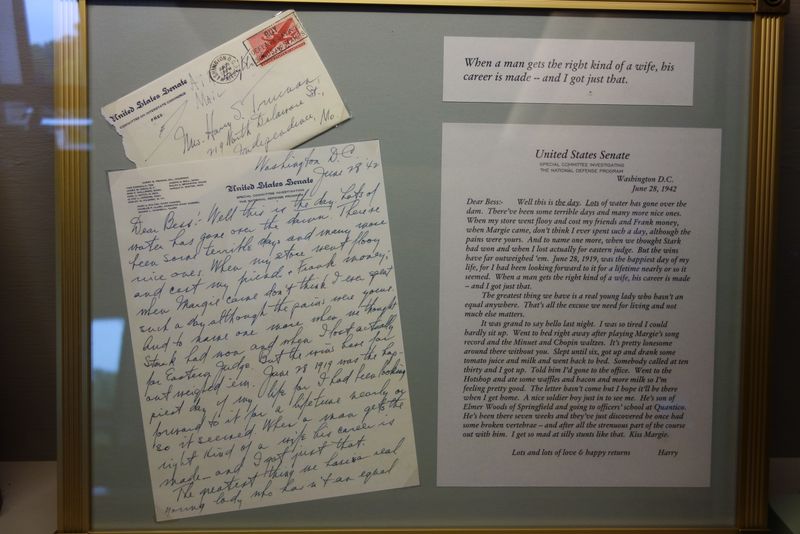 United States Senate
COMMITTEE ON INTERSTATE COMMERCE
FREE
Air
Mail
Mrs. Harry S. Truman
219 North Delaware St.,
Independence, Mo.
When a man gets the right kind of a wife, his
career is made -- and I got just that.
Washington D.C.
June 28 '42
United States Senate
Dear Bess:- Well this is the day. Lots of
water has gone over the dam. There've
been some terrible days and many more
nice ones. When my store went flooy
and cost my friends + Frank money,
when Margie came don't think I ever spent
such a day although the pains were yours.
And to name one more when we thought
Stark had won and when I lost actually
for Eastern Judge. But the wins have far
out weighed 'em. June 28 1919 was the hap-
piest day of my life for I had been looking
forward to it for a lifetime nearly or
so it seemed. When a man gets the
right kind of a wife his career is
made - and I got just that.
The greatest thing we have is a real
young lady who hasn't an equal
United States Senate
SPECIAL COMMITTEE INVESTIGATING
THE NATIONAL DEFENSE PROGRAM
Washington D.C.
June 28, 1942
Dear Bess:- Well this is the day. Lots of water has gone over the
dam. There've been some terrible days and many more nice ones.
When my store went flooy and cost my friends and Frank money,
when Margie came, don't think I ever spent such a day, although the
pains were yours. And to name one more, when we thought Stark
had won and when I lost actually for eastern judge. But the wins
have far outweighed 'em. June 28, 1919, was the happiest day of my
life, for I had been looking forward to it for a lifetime nearly or so it
seemed. When a man gets the right kind of a wife, his career is made
-- and I got just that.
The greatest thing we have is a real young lady who hasn't an
equal anywhere. That's all the excuse we need for living and not
much else matters.
It was grand to say hello last night. I was so tired I could
hardly sit up. Went to bed right away after playing Margie's song
record and the Minuet and Chopin waltzes. It's pretty lonesome
around there without you. Slept until six, got up and drank some
tomato juice and milk and went back to bed. Somebody called at ten
thirty and I got up. Told him I'd gone to the office. Went to the
Hotshop and ate some waffles and bacon and more milk so I'm
feeling pretty good. The letter hasn't come but I hope it'll be there
when I get home. A nice soldier boy just in to see me. He's son of
Elmer Woods of Springfield and going to officers' school at Quantico.
He's been there seven weeks and they've just discovered he once had
some broken vertebrae -- and after all the strenuous part of the course
out with him. I get so mad at silly stunts like that. Kiss Margie.
Lots and lots of love & happy returns Harry